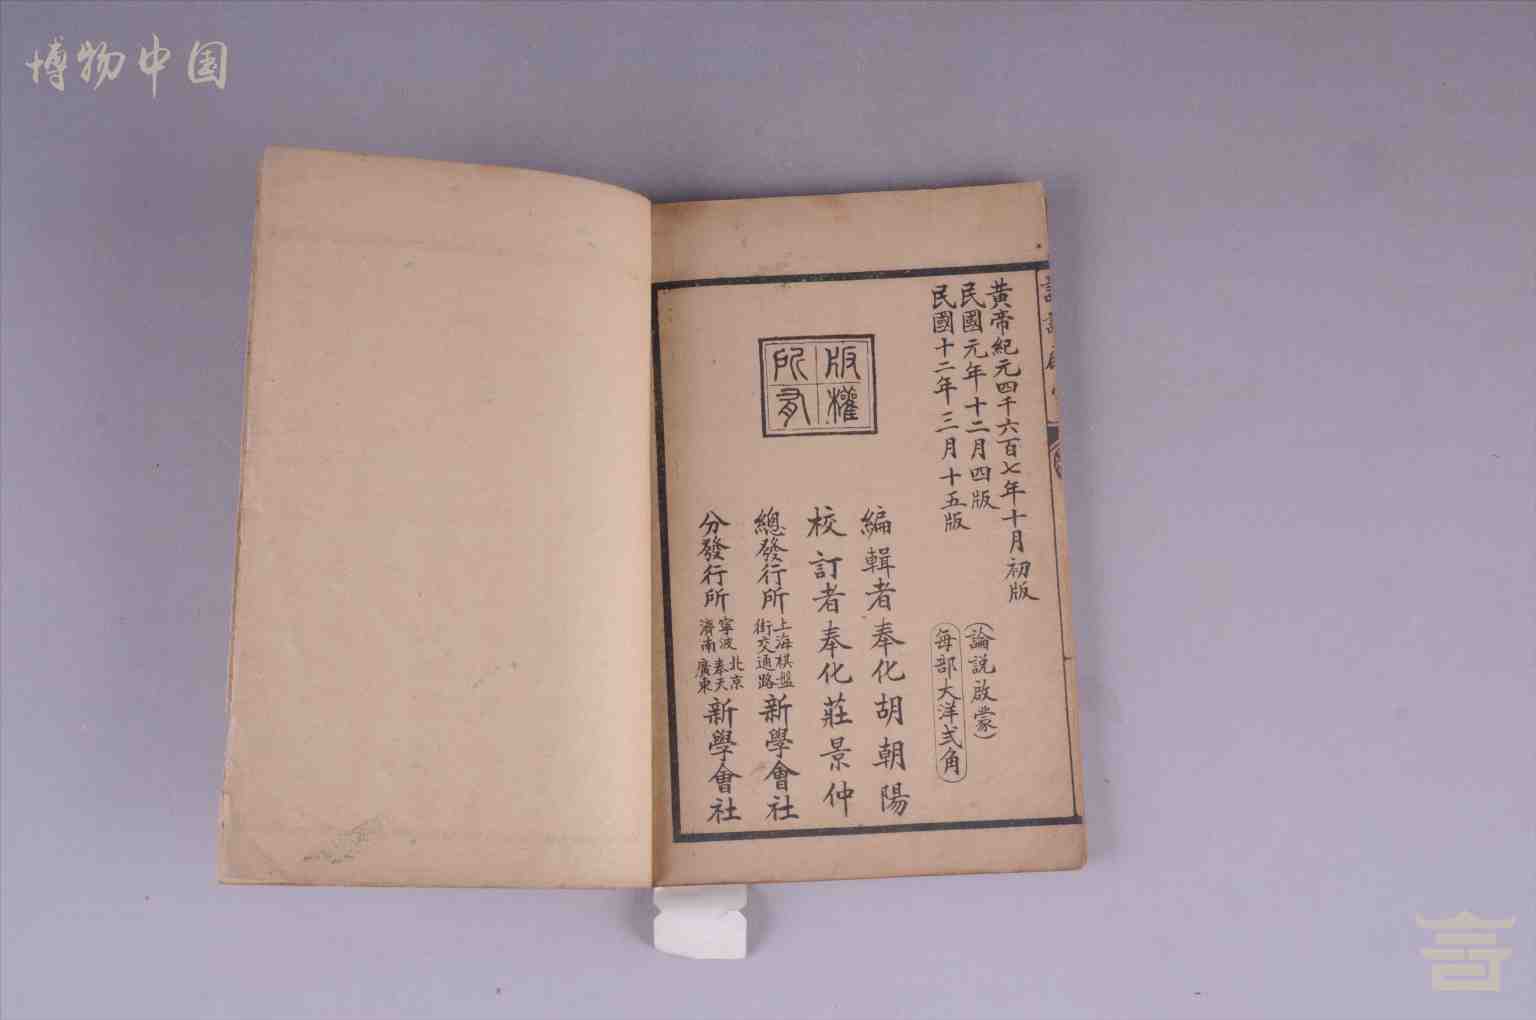 博物中国
黃帝紀元四千六百七年十月初版
民國元年十二月四版
民國十二年三月十五版
(論說啟蒙)
每部大洋弍角
版權所有
編輯者奉化胡朝陽
校訂者奉化莊景仲
總發行所上海棋盤街交通路新學會社
分發行所寧波北京濟南奉天廣東新學會社